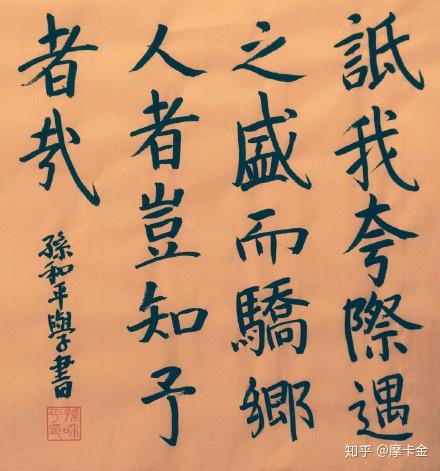 詆我夸際遇
之盛而驕鄉
人者豈知予
者㢤
孫和平學書
知乎 @摩卡金